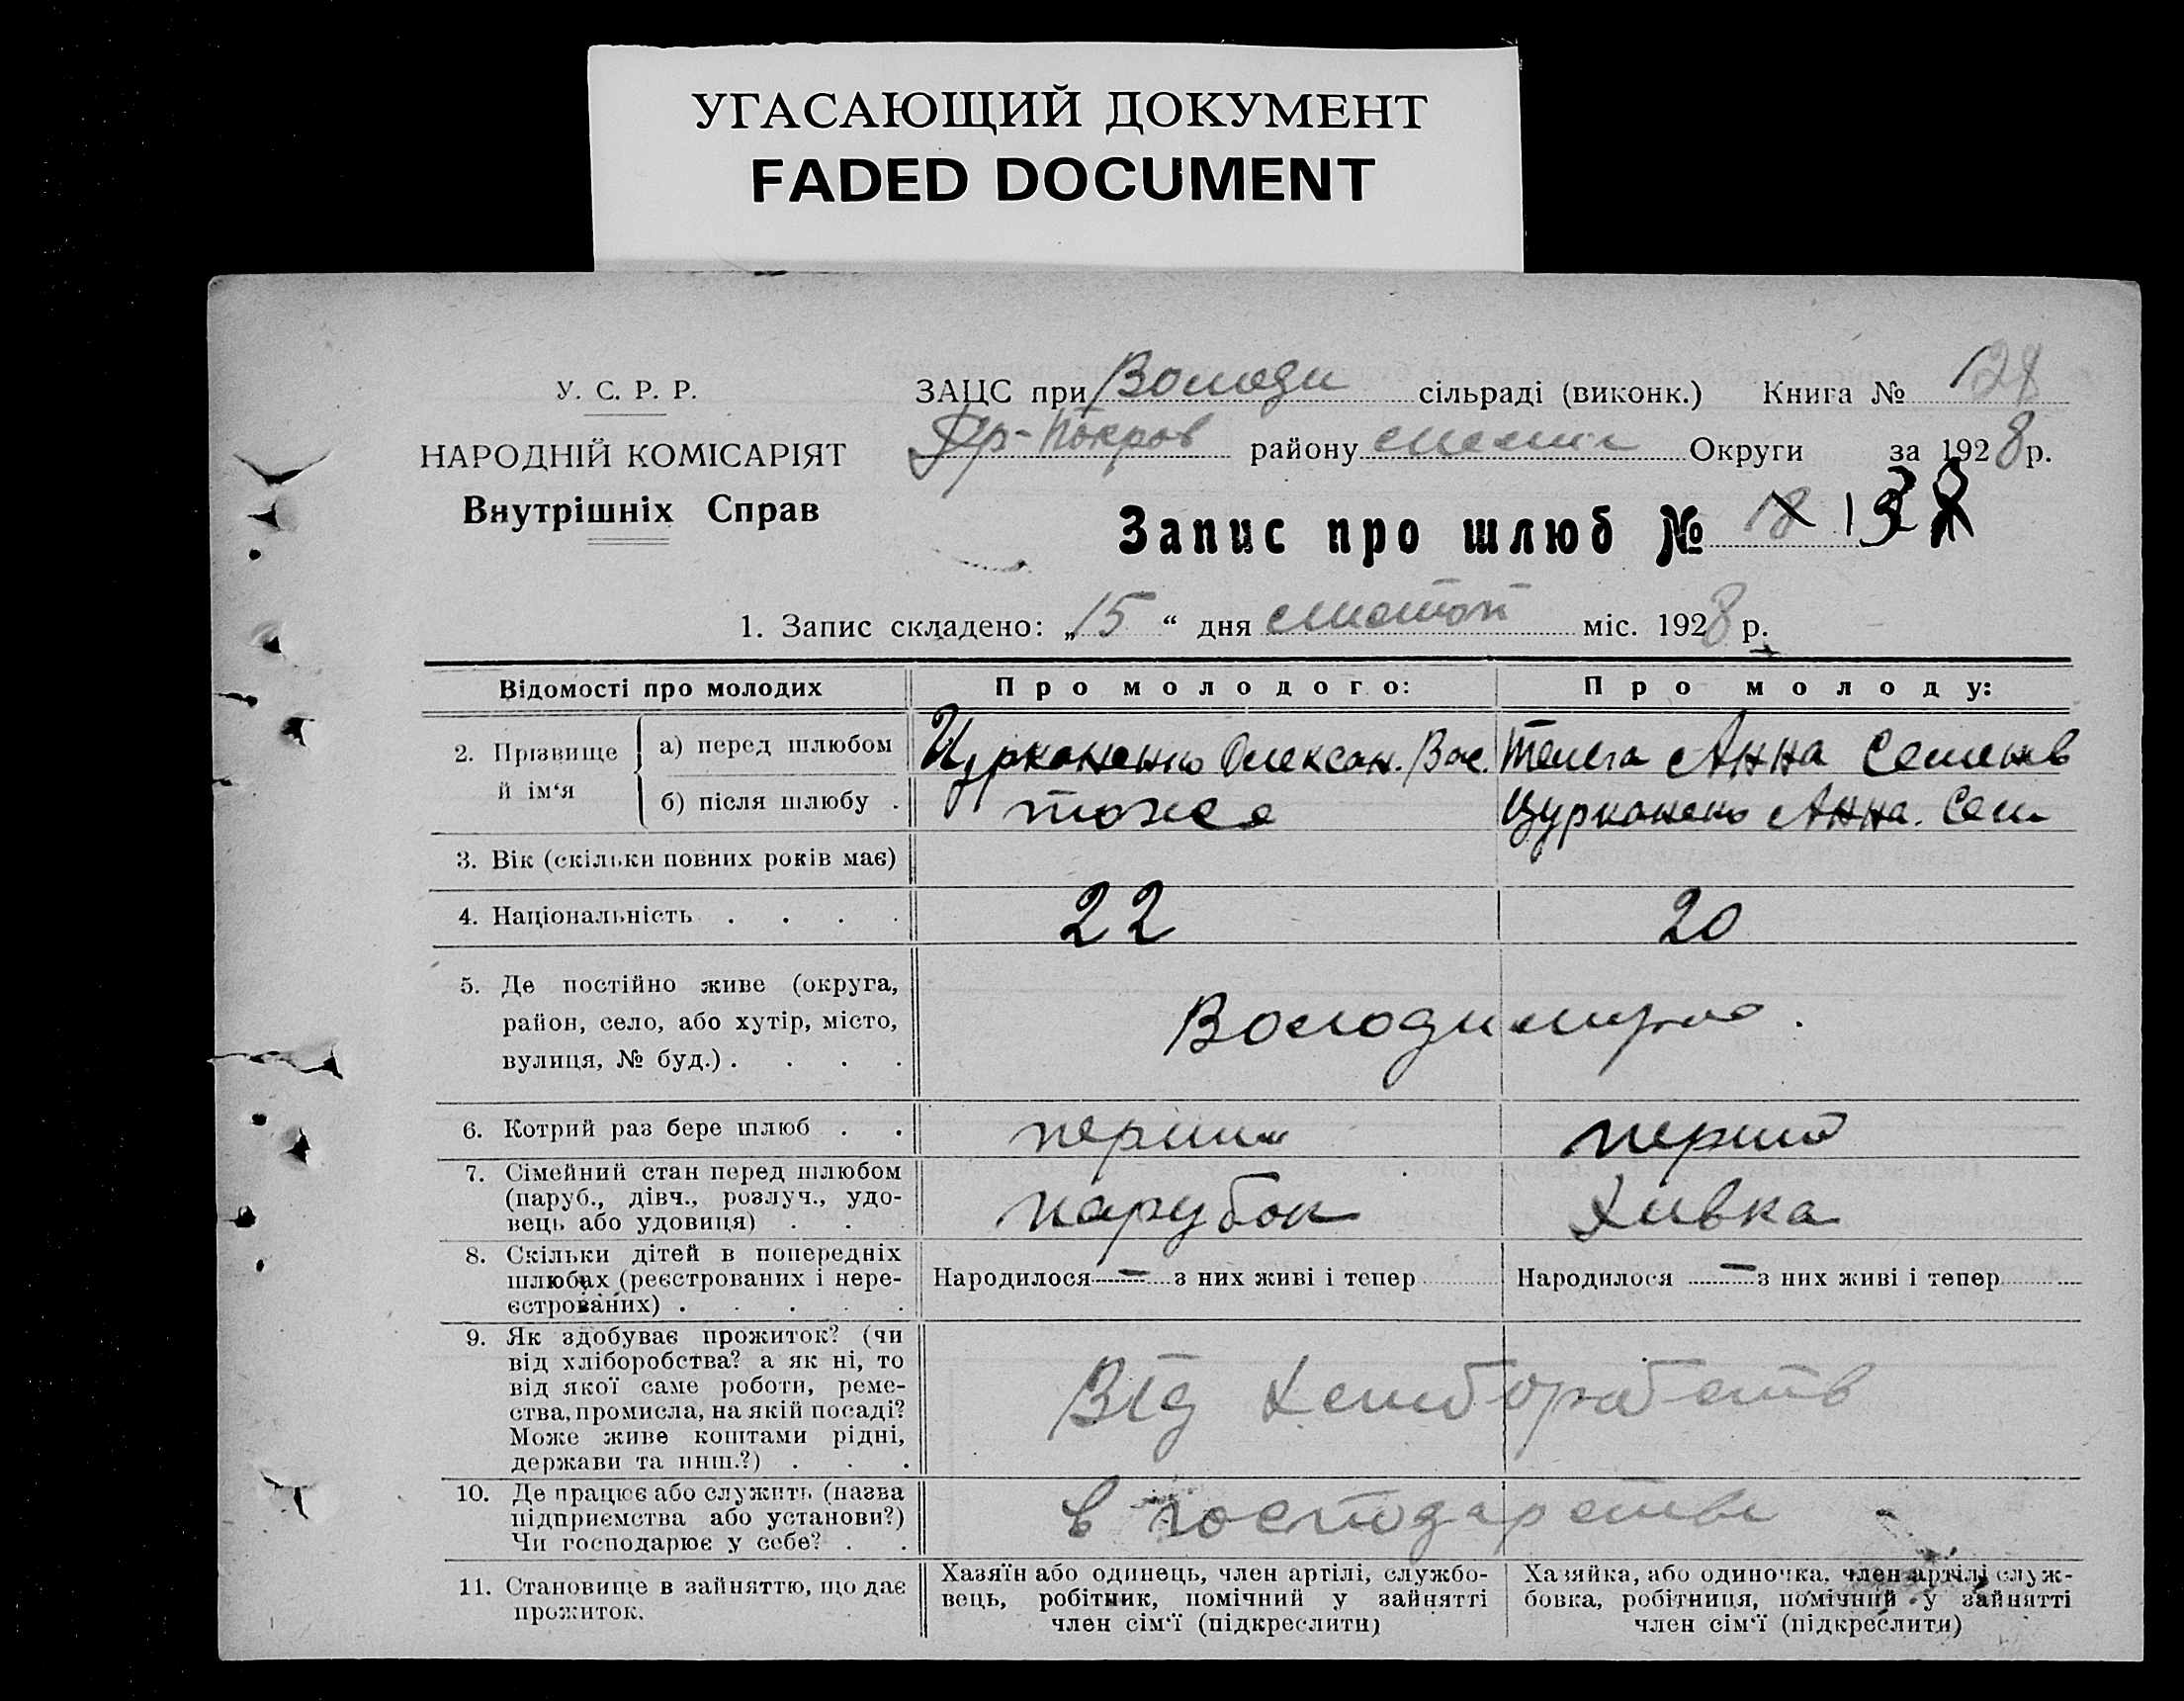 УГАСАЮЩИЙ ДОКУМЕНТ
FADED DOCUMENT
У. С. Р. Р.
НАРОДНІЙ КОМІСАРІЯТ
Внутрішніх Справ
ЗАЦС при Володи сільраді (виконк.) Книга № 128
Др-Покров району Округи за 1928 р.
Запис про шлюб № 18
1. Запис складено: „15“ дня лютоп міс. 1928 р.
Відомості про молодих
Про молодого:
Про молоду:
2. Прізвище й ім‘я
а) перед шлюбом
Цурканенко Олексан. Вас.
Телега Анна Семенів
б) після шлюбу .
тоже
Цурканено Анна. Сем
3. Вік (скільки повних років має)
4. Національність . . . .
22
20
5. Де постійно живе (округа,
район, село, або хутір, місто,
вулиця, № буд.) . . . .
Володимирка.
6. Котрий раз бере шлюб . .
перший
перший
7. Сімейний стан перед шлюбом
(паруб., дівч., розлуч., удо-
вець або удовиця) . . .
парубок
дивка
8. Скільки дітей в попередніх
шлюбах (реєстрованих і нере-
єстрованих) . . . . .
Народилося — з них живі і тепер
Народилося — з них живі і тепер
9. Як здобуває прожиток? (чи
від хліборобства? а як ні, то
від якої саме роботи, реме-
ства, промисла, на якій посаді?
Може живе коштами рідні,
держави та инш.?) . . .
Від
10. Де працює або служить (назва
підприємства або установи?)
Чи господарює у себе? . .
в господарстві
11. Становище в зайняттю, що дає
прожиток.
Хазяїн або одинець, член артілі, службо-
вець, робітник, помічний у зайнятті
член сім‘ї (підкреслити)
Хазяйка, або одиночка, член артілі служ-
бовка, робітниця, помічний у зайнятті
член сім‘ї (підкреслити)